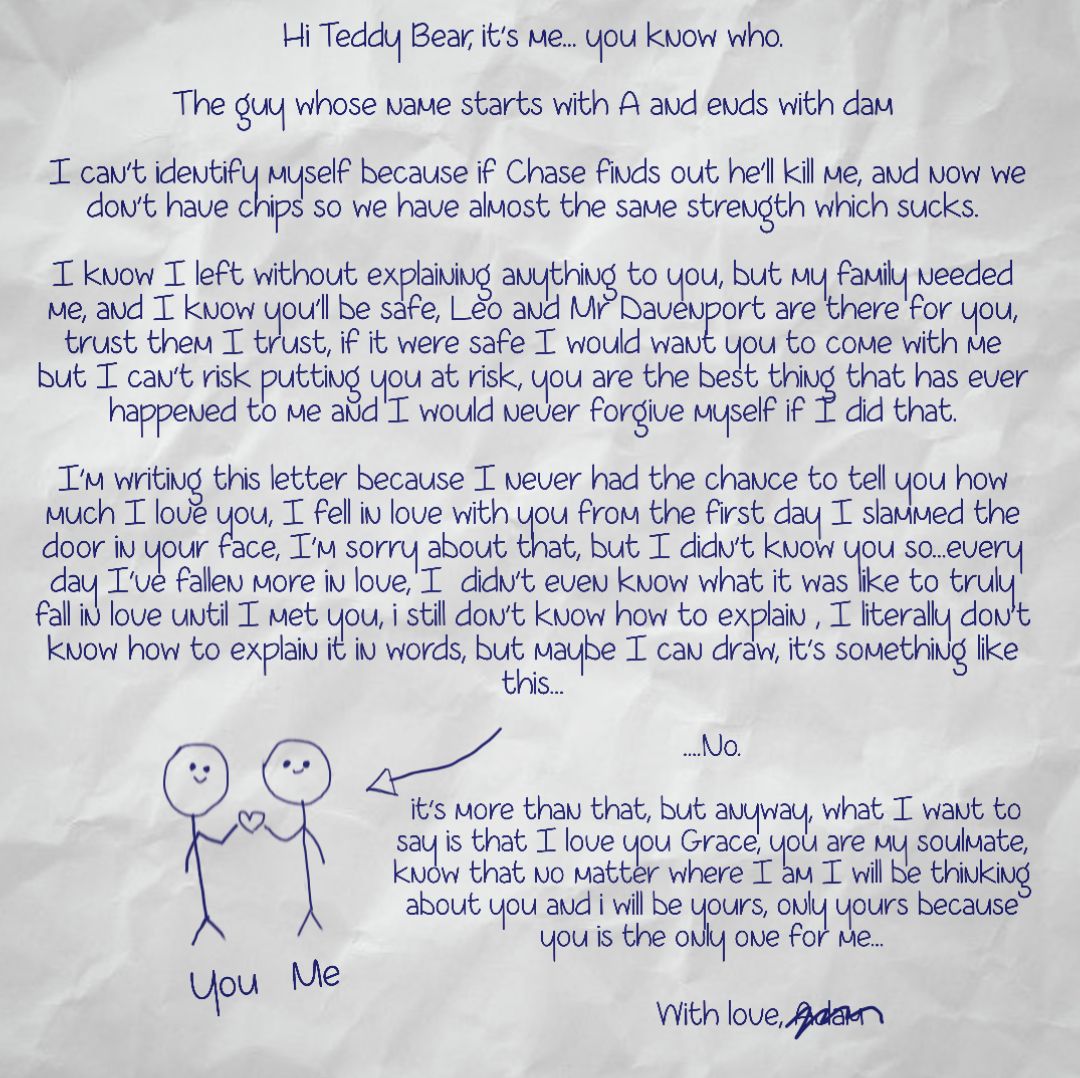 Hi Teddy Bear, it's me... you know who.
The guy whose name starts with A and ends with dam
I can't identify myself because if Chase finds out he'll kill me, and now we
don't have chips so we have almost the same strength which sucks.
I know I left without explaining anything to you, but my family needed
me, and I know you'll be safe, Leo and Mr Davenport are there for you,
trust them I trust, if it were safe I would want you to come with me
but I can't risk putting you at risk, you are the best thing that has ever
happened to me and I would never forgive myself if I did that.
I'm writing this letter because I never had the chance to tell you how
much I love you, I fell in love with you from the first day I slammed the
door in your face, I'm sorry about that, but I didn't know you so...every
day I've fallen more in love, I didn't even know what it was like to truly
fall in love until I met you, i still don't know how to explain , I literally don't
know how to explain it in words, but maybe I can draw, it's something like
this...
....No.
it's more than that, but anyway, what I want to
say is that I love you Grace, you are my soulmate,
know that no matter where I am I will be thinking
about you and i will be yours, only yours because
you is the only one for me...
You Me
With love, Adam